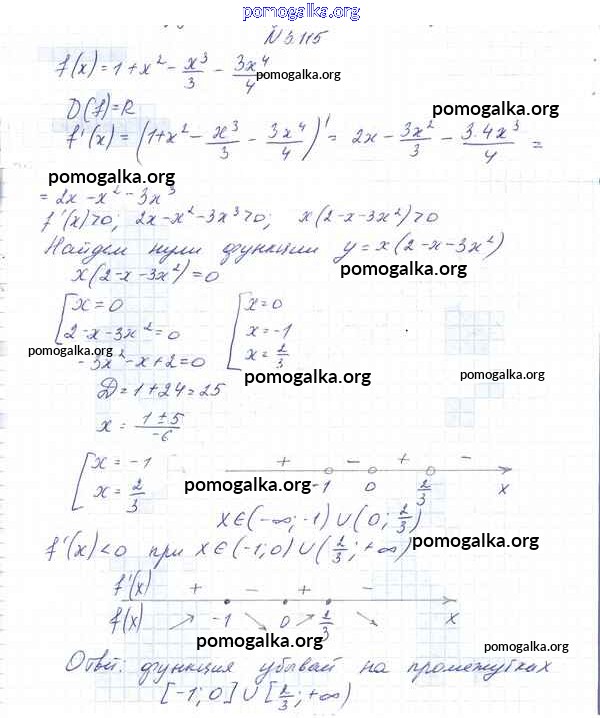 pomogalka.org
№5.115
f(x) = 1 + x² - x³/3 - 3x⁴/4
pomogalka.org
D(f) = R
pomogalka.org
f'(x) = (1 + x² - x³/3 - 3x⁴/4)' = 2x - 3x²/3 - 3·4x³/4 =
pomogalka.org
= 2x - x² - 3x³
f'(x)>0; 2x - x² - 3x³>0; x(2-x-3x²)>0
Найдем нули функции y = x(2-x-3x²)
pomogalka.org
x(2-x-3x²) = 0
[ x = 0 [ x = 0
2-x-3x² = 0 x = -1
pomogalka.org x = 2/3
-3x² - x + 2 = 0
pomogalka.org pomogalka.org
D = 1 + 24 = 25
x = 1±5/-6
[ x = -1 + - + -
x = 2/3 pomogalka.org -1 0 2/3 x
x∈(-∞; -1) ∪ (0; 2/3)
f'(x)<0 при x∈(-1; 0) ∪ (2/3; +∞) pomogalka.org
f'(x) + - + -
f(x) -1 0 2/3 x
pomogalka.org
pomogalka.org
Ответ: функция убывай на промежутках
[-1; 0] ∪ [2/3; +∞)